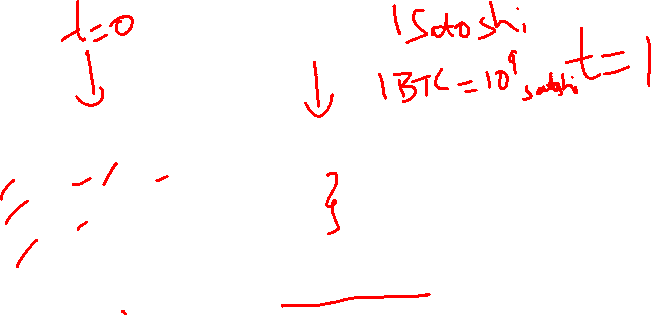 t=0
1 Satoshi
1 BTC = 10⁹ satoshi
t=1